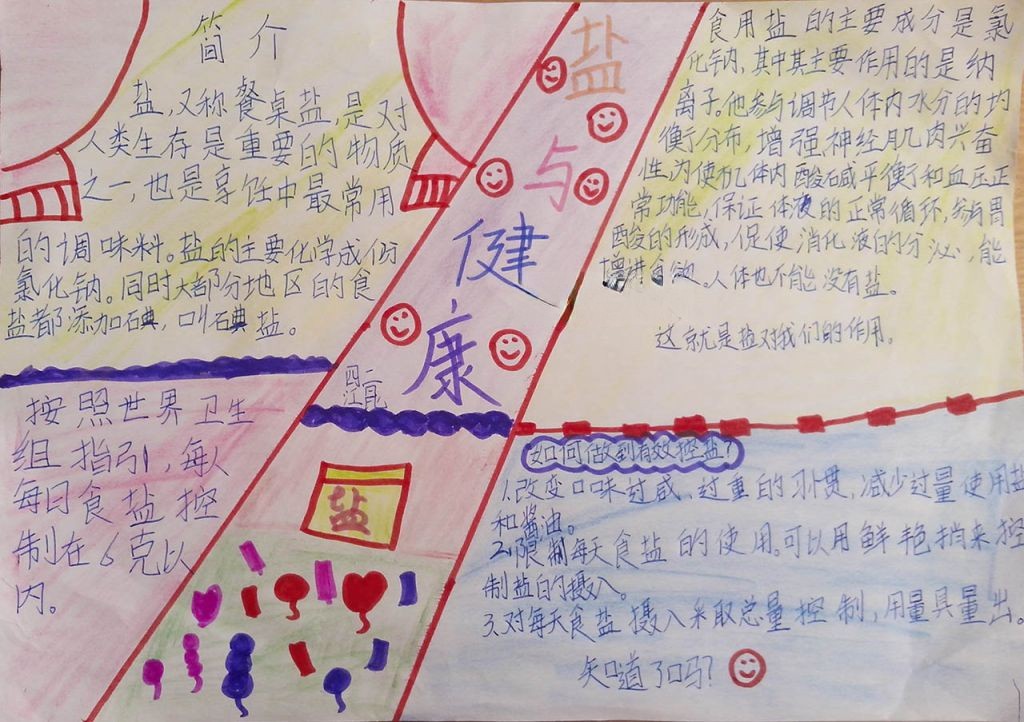 简介
盐，又称餐桌盐，是对
人类生存是重要的物质
之一，也是享饪中最常用
的调味料。盐的主要化学成份
氯化钠。同时大部分地区的食
盐都添加碘，叫碘盐。
按照世界卫生
组指引，每人
每日食盐控
制在6克以
内。
盐
与
健
康
四一
江
盐
食用盐的主要成分是氯
化钠，其中其主要作用的是纳
离子。他参与调节人体内水分的均
衡分布，增强神经肌肉兴奋
性为使机体内酸碱平衡和血压正
常功能，保证体液的正常循环，参与胃
酸的形成，促使消化液的分泌，能
增进食欲。人体也不能没有盐。
这就是盐对我们的作用。
如何做到有效控盐？
1.改变口味过咸、过重的习惯，减少过量使用盐
和酱油。
2.限制每天食盐的使用。可以用鲜艳捎来控
制盐的摄入。
3.对每天食盐摄入采取总量控制，用量具量出。
知道了吗？